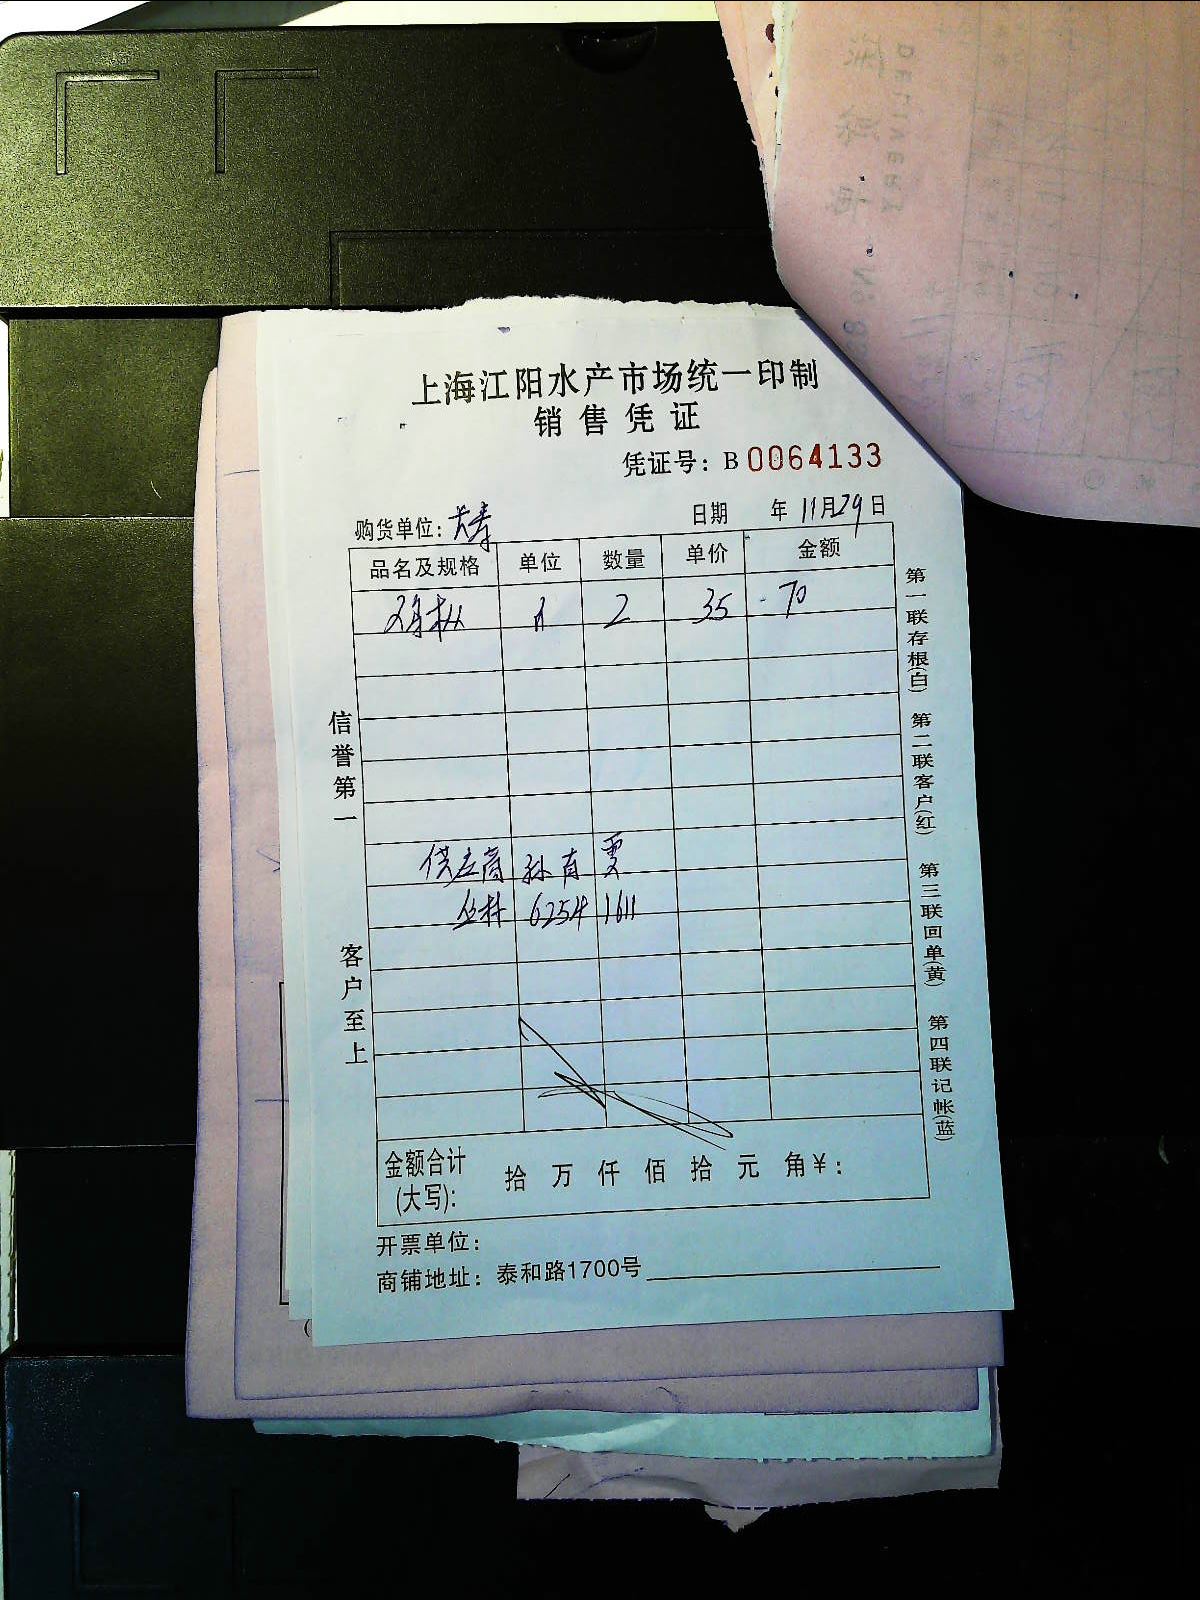 上海江阳水产市场统一印制
销售凭证
凭证号：B 0064133
购货单位：长寿
日期 年 11月29日
品名及规格 单位 数量 单价 金额
鸡枞 2 35 70
供应商 孙有雯
丛林 6254 1611
金额合计
(大写)： 拾 万 仟 佰 拾 元 角 ¥：
开票单位：
商铺地址：泰和路1700号
信誉第一
客户至上
第一联存根(白) 第二联客户(红) 第三联回单(黄) 第四联记帐(蓝)
DELIVERY